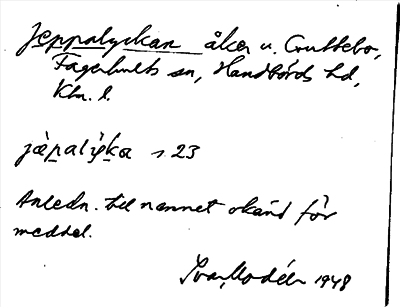 Jeppalyckan åker u. Gruttebo,
Fagerhults sn, Handbörds hd,
Klm. l.
jæ̀palýka s. 23
Anledn. till namnet okänd för
meddel.
Ivar Modéer 1948